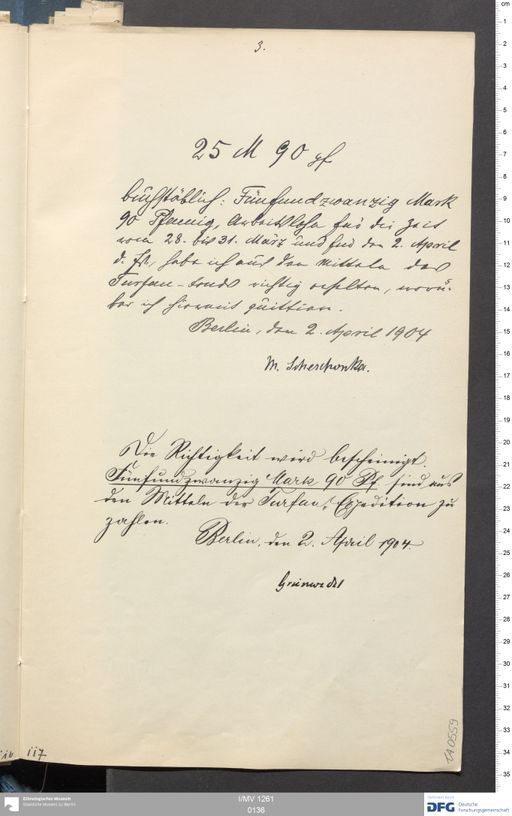 3.
25 M 90 pf.
buchstäblich: Fünfundzwanzig Mark
90 Pfennig, Arbeitslohn für die Zeit
vom 28. bis 31. März und für den 2. April
d. Js., habe ich aus den Mitteln des
Turfan-Fonds richtig erhalten, worü-
ber ich hiermit quittire.
Berlin, den 2. April 1904
M. Scheschonka.
Die Richtigkeit wird bescheinigt.
Fünfundzwanzig Mark 90 Pf. sind aus
den Mitteln der Turfan-Expedition zu
zahlen.
Berlin, den 2. April 1904
Grünwedel
117
1A0559
Ethnologisches Museum
Staatliche Museen zu Berlin
I/MV 1261
0136
DFG
Deutsche
Forschungsgemeinschaft